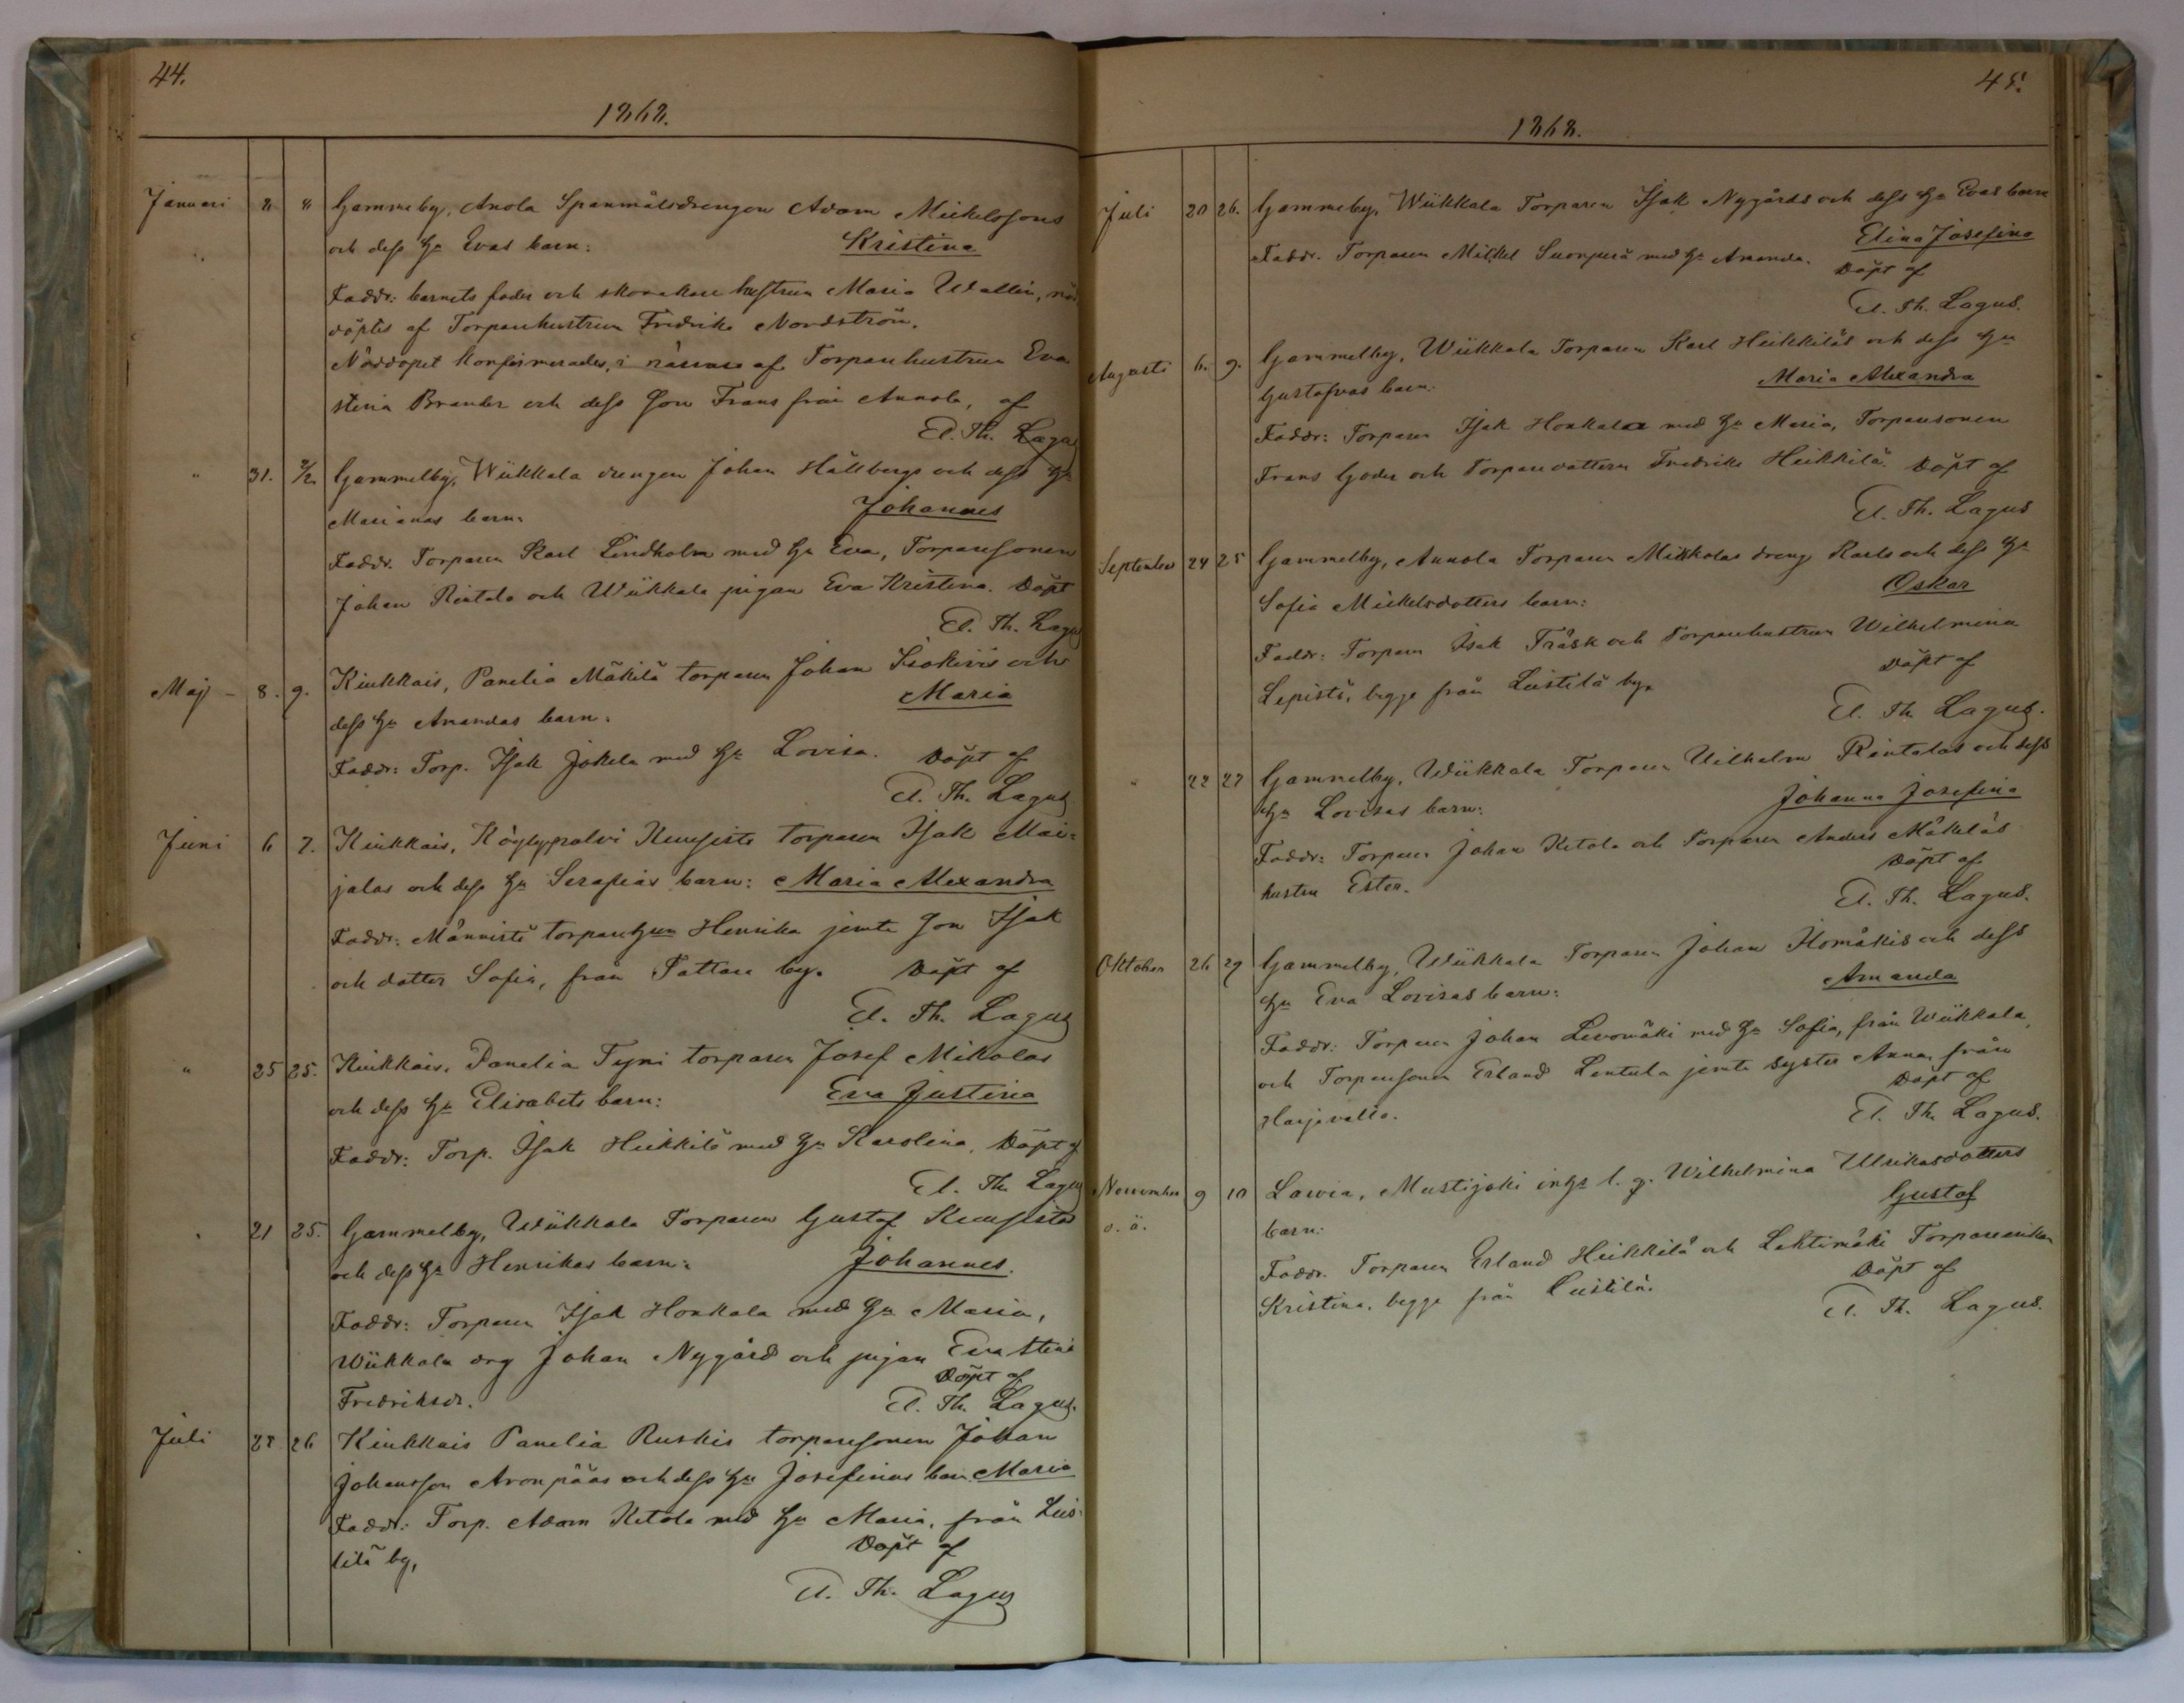 44.
1868.
Januari 8 " Gammelby, Anola Spanmålsdrengen Adam Mickelssons
och dess Hu Evas barn: Kristina
Faddr: barnets fader och skomakare hustrun Maria Wallin, nöd
döptes af Torparehustrun Fredrika Nordström.
Nöddopet konfirmerades, i närvaro af Torparehustrun Eva
Stina Brander och dess Son Frans från Annola, af
El. Th. Lagus
" 31. 2/2 Gammelby, Wiikkala drengen Johan Hällbergs och dess Hu
Marianas barn: Johannes
Faddr. Torparen Karl Lindholm med Hu Eva, Torparesonen
Johan Rintala och Wiikkala pigan Eva Kristina. Döpt
El. Th. Lagus
Maj 8. 9. Kiukkais, Panelia Mäkilä torparen Johan Isokivis och
dess Hu Amandas barn: Maria
Faddr: Torp. Isak Jokela med Hu Lovisa. Döpt af
El. Th. Lagus
Juni 6 7. Kiukkais, Köylypolvi Kuusisto torparen Isak Mai=
jalas och dess Hu Serafias barn: Maria Alexandra
Faddr: Männistö torpareHun Henrika jemte Son Isak
och dotter Sofia, från Tattara by. Döpt af
El. Th. Lagus
" 25 25. Kiukkais, Panelia Tyni torparen Josef Mikolas
och dess Hu Elisabets barn: Eva Justina
Faddr: Torp. Isak Heikkilä med Hu Karolina, Döpt af
El. Th. Lagus
" 21 25. Gammelby, Wiikkala Torparen Gustaf Kuusistos
och dess Hu Henrikas barn: Johannes.
Faddr: Torparen Isak Honkala med Hu Maria,
Wiikkala drg Johan Nygård och pigan Eva Stina
Fredriksdr. Döpt af
El. Th. Lagus.
Juli 25 26 Kiukkais Panelia Ruskis torparesonen Johan
Johansson Aronpääs och dess Hu Josefinas barn Maria
Faddr: Torp. Adam Ketola med Hu Maria, från Lus-
tilä by, Döpt af
El. Th. Lagus
45.
1868.
Juli 20 26. Gammelby, Wiikkala Torparen Isak Nygårds och dess Hu Evas barn
Elina Josefina
Faddr. Torparen Mickel Suonperä med Hu Amanda. Döpt af
El. Th. Lagus.
Augusti 6. 9. Gammelby, Wiikkala Torparen Karl Heikkiläs och dess Hu
Gustafvas barn: Maria Alexandra
Faddr: Torparen Isak Honkala med Hu Maria, Torparesonen
Frans Goder och Torparedottern Fredrika Heikkilä. Döpt af
El. Th. Lagus
September 24 25 Gammelby, Annola Torparen Mikkolas dreng Karls och dess Hu
Sofia Mickelsdotters barn: Oskar
Faddr: Torparen Isak Träsk och Torparehustrun Wilhelmina
Lepistö, begge från Leistilä by. Döpt af
El. Th. Lagus.
" 22 27 Gammelby, Wiikkala Torparen Vilhelm Rintalas och dess
Hu Lovisas barn: Johanna Josefina
Faddr: Torparen Johan Ketola och Torparen Anders Mäkeläs
hustru Ester. Döpt af
El. Th. Lagus.
Oktober 26 29 Gammelby, Wiikkala Torparen Johan Isomäkis och dess
Hu Eva Lovisas barn: Amanda
Faddr: Torparen Johan Levomäki med Hu Sofia, från Wiikkala,
och Torparesonen Erland Lentula jemte syster Anna, från
Harjavalta. Döpt af
El. Th. Lagus.
November 9 10 Lawia, Mustijoki inhys l. g. Wilhelmina Ulrikasdotters
o. ä. barn: Gustaf
Faddr. Torparen Erland Heikkilä och Lehtimäki Torpareenkan
Kristina, begge från Leistilä. Döpt af
El. Th. Lagus.